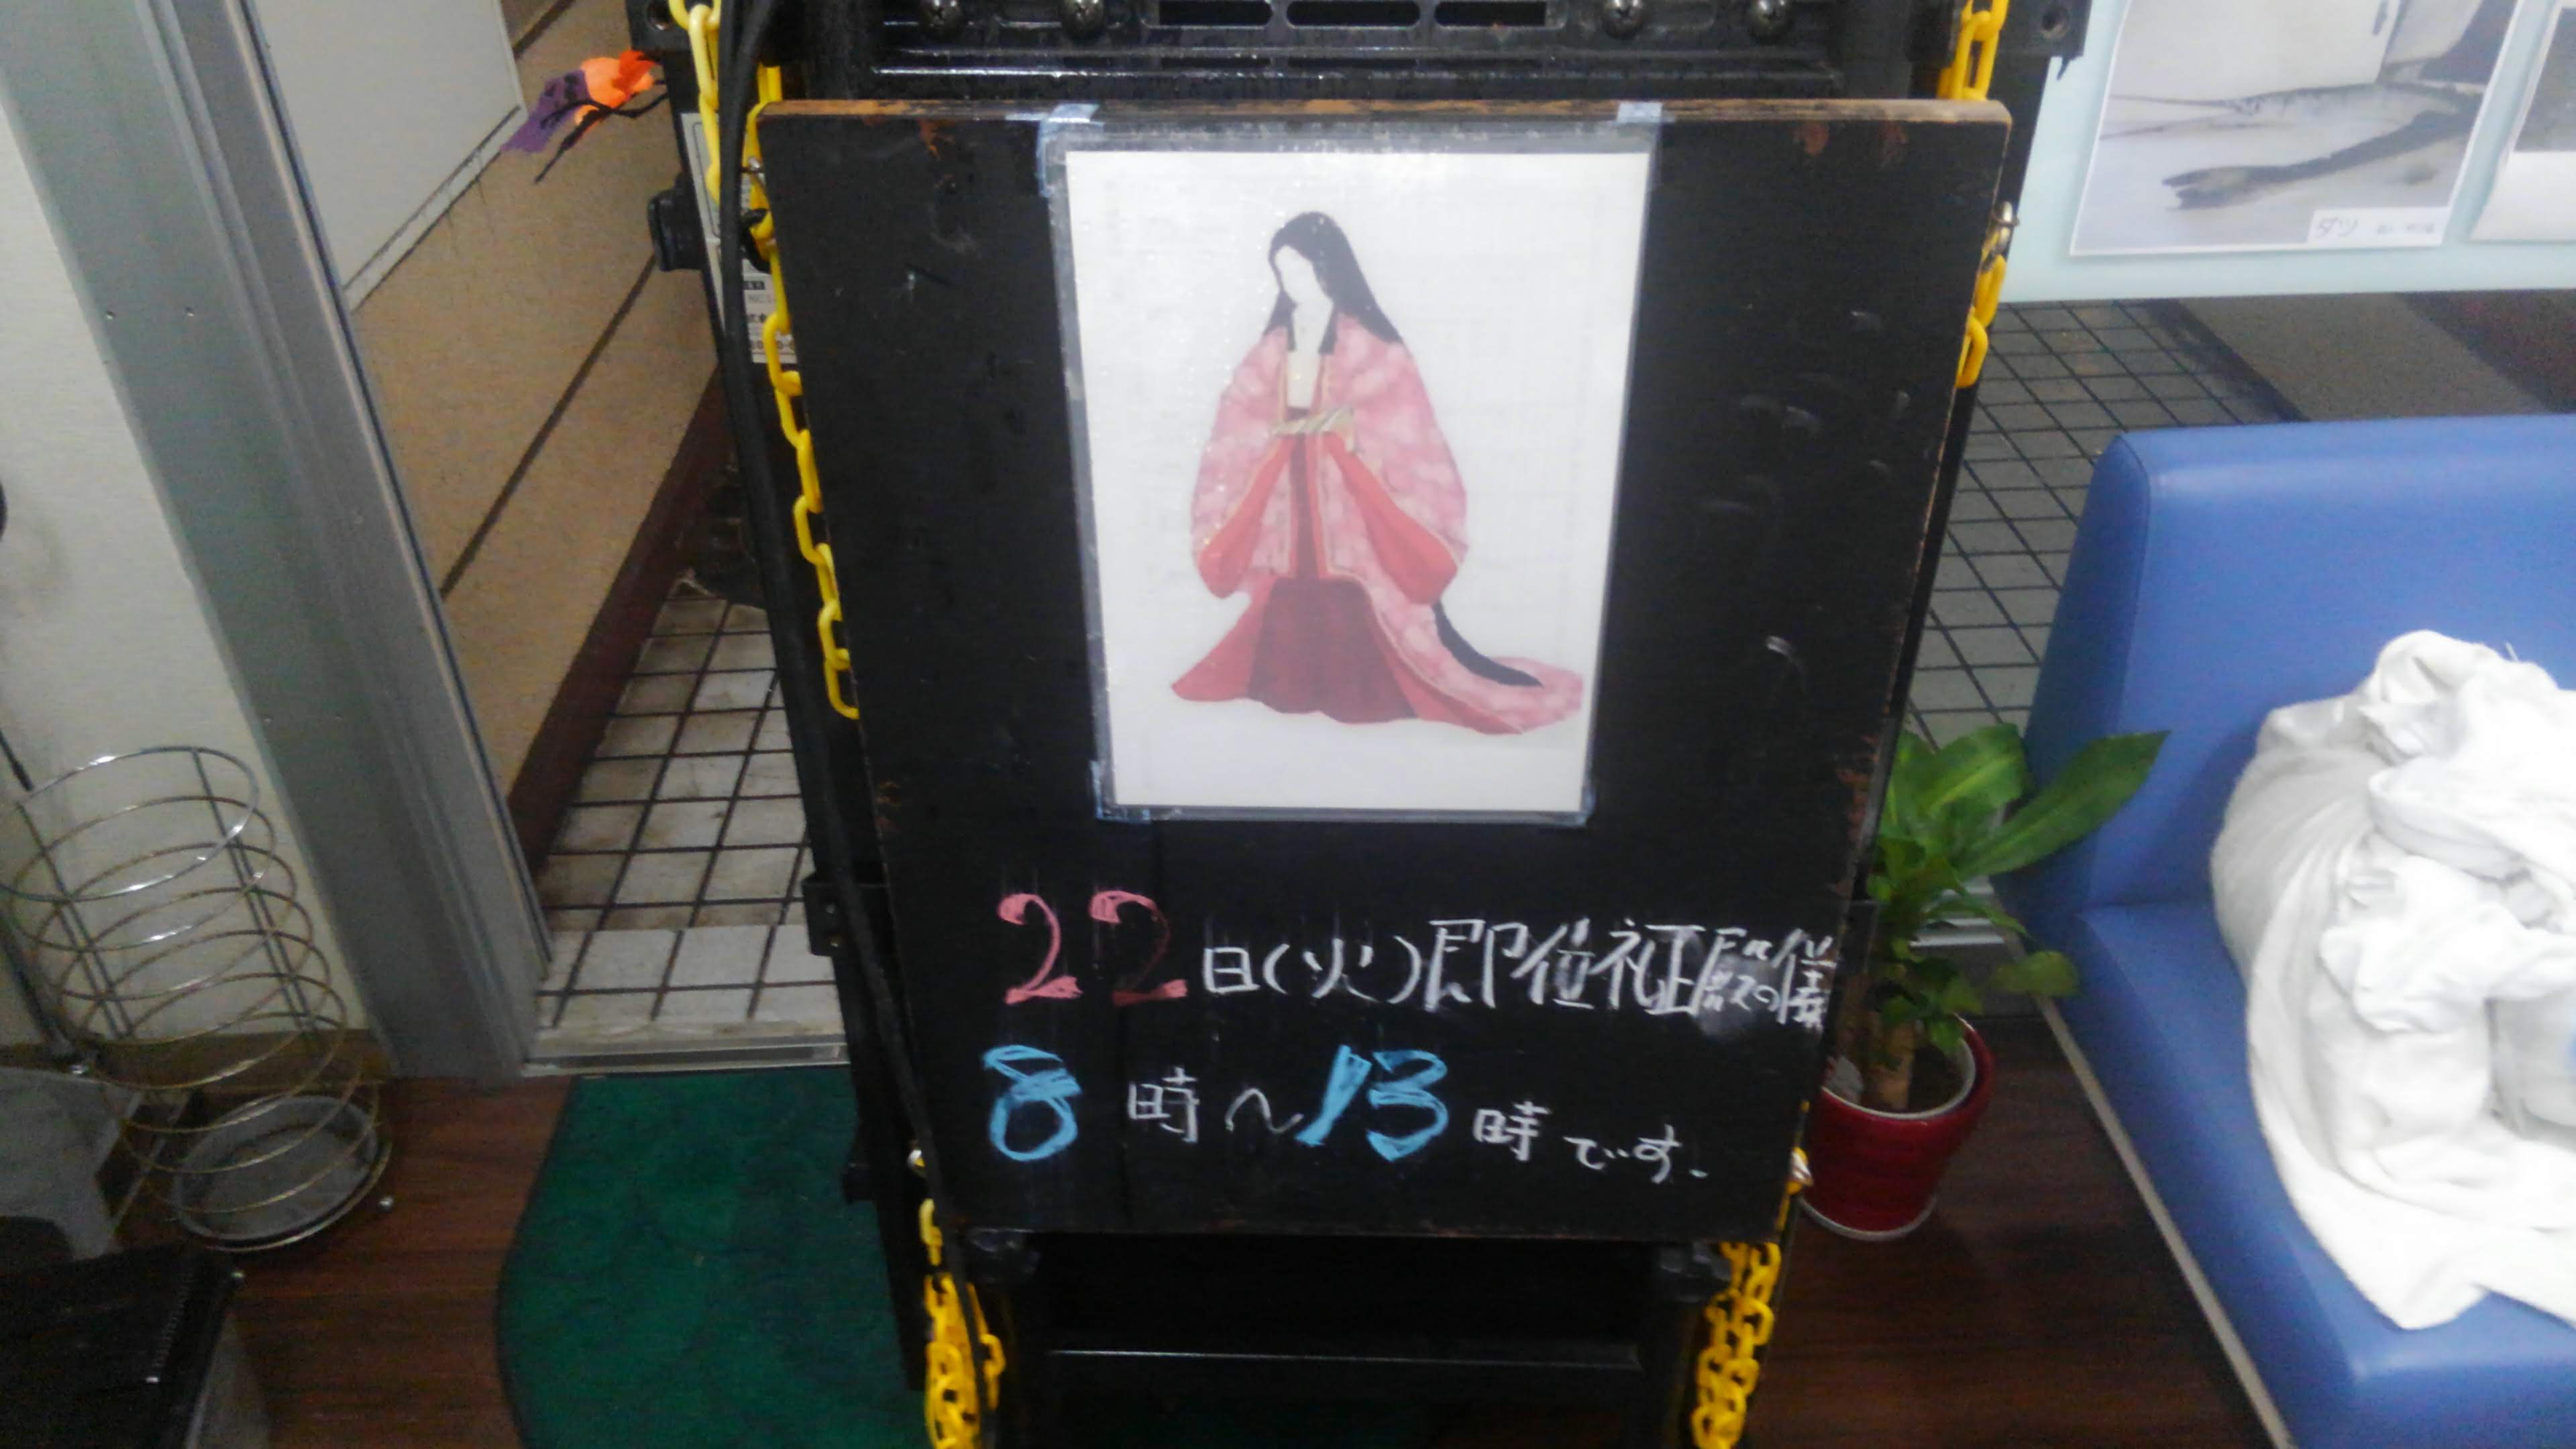 ダツ
22日(火)即位礼正殿の儀
8時〜13時です.